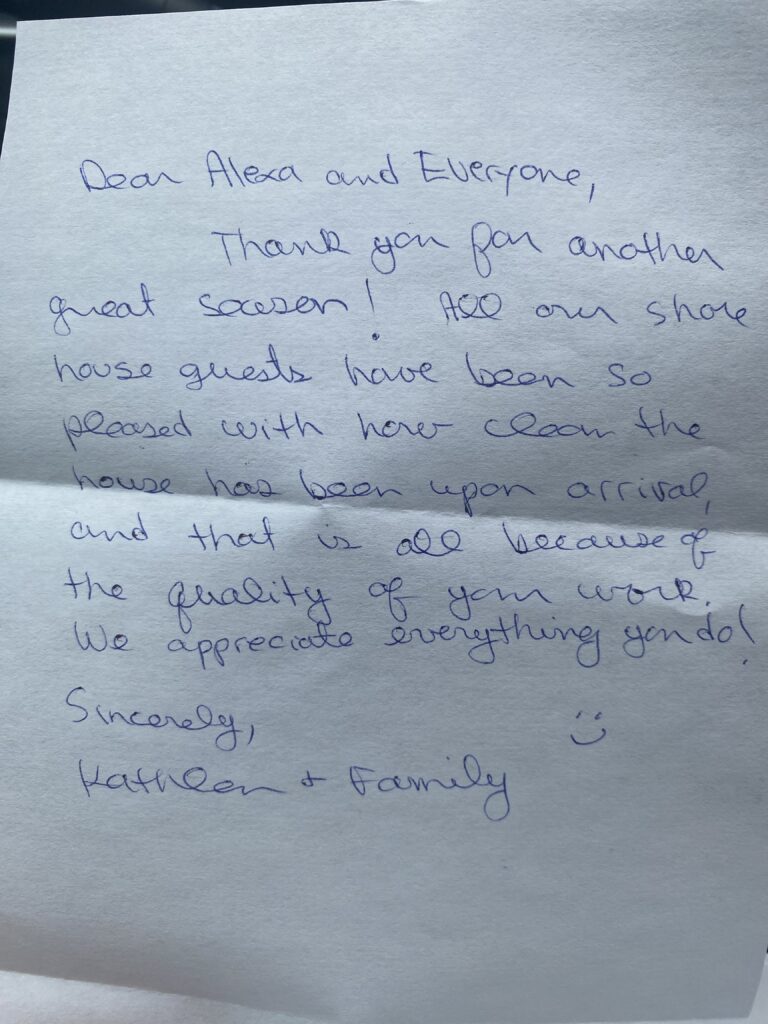 Dear Alexa and Everyone,
Thank you for another
great season! All our shore
house guests have been so
pleased with how clean the
house has been upon arrival,
and that is all because of
the quality of your work.
We appreciate everything you do!
Sincerely,
Kathleen + Family